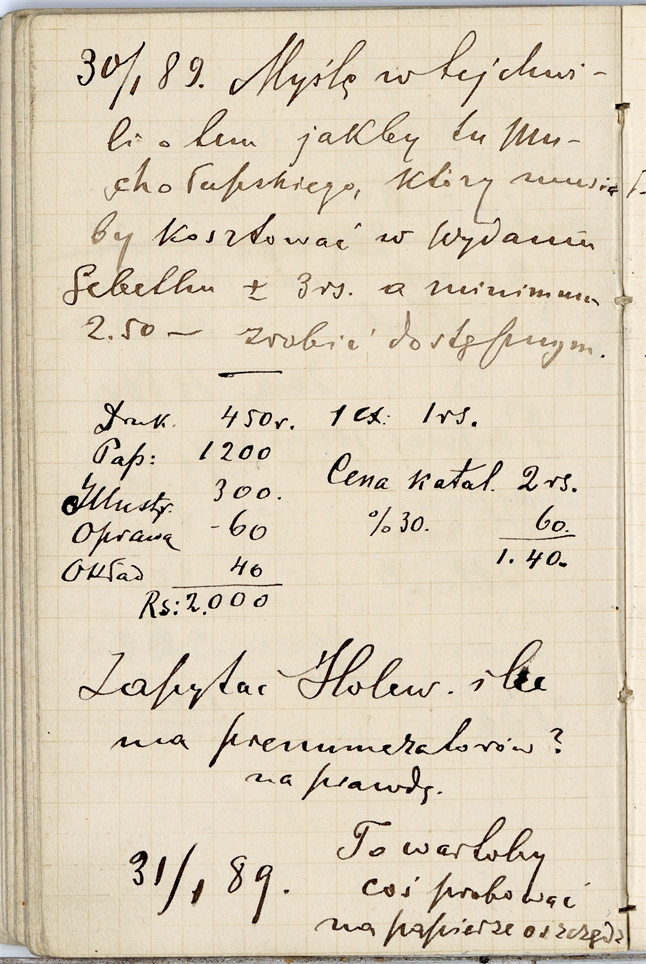 30/1 89. Myślę w tej chwi-
li o tem jakby tu Mu-
chołapskiego, który musiał
by kosztować w wydaniu
Gebethn ± 3 rs. a minimum
2.50 — zrobić dostępnym.
Druk. 450 r. 1 ex: 1 rs.
Pap: 1200
Cena katal. 2 rs.
Illustr. 300.
%30. 60.
Oprawa - 60
1.40.
Okład 40
Rs: 2.000
Zapytać Holew. ile
ma prenumeratorów?
na prawdę.
31/1 89. To wartoby
coś probować
na papierze oszczędz